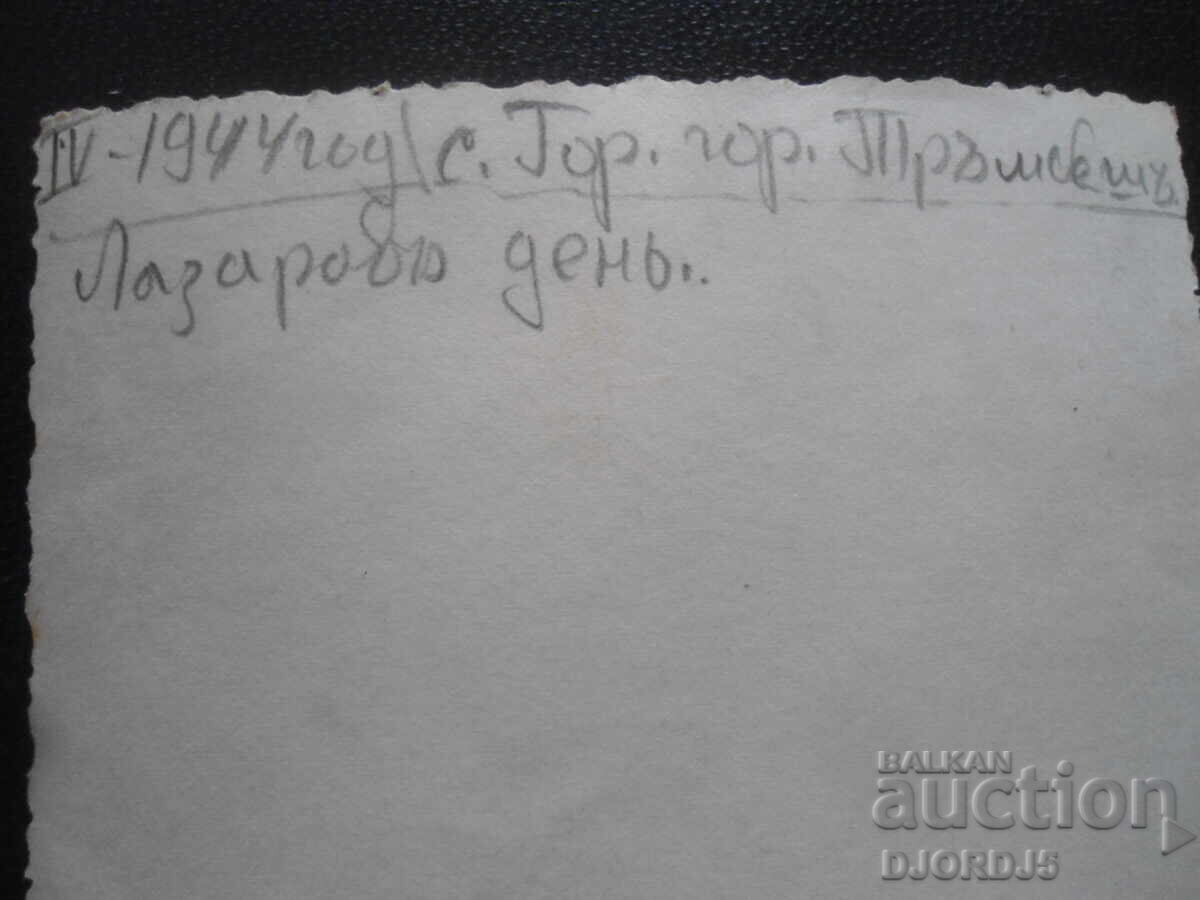 IV-1944 год\ с. Гор. гор. Тръмбешъ.
Лазаровъ день..
BALKAN
auction
DJORDJ5